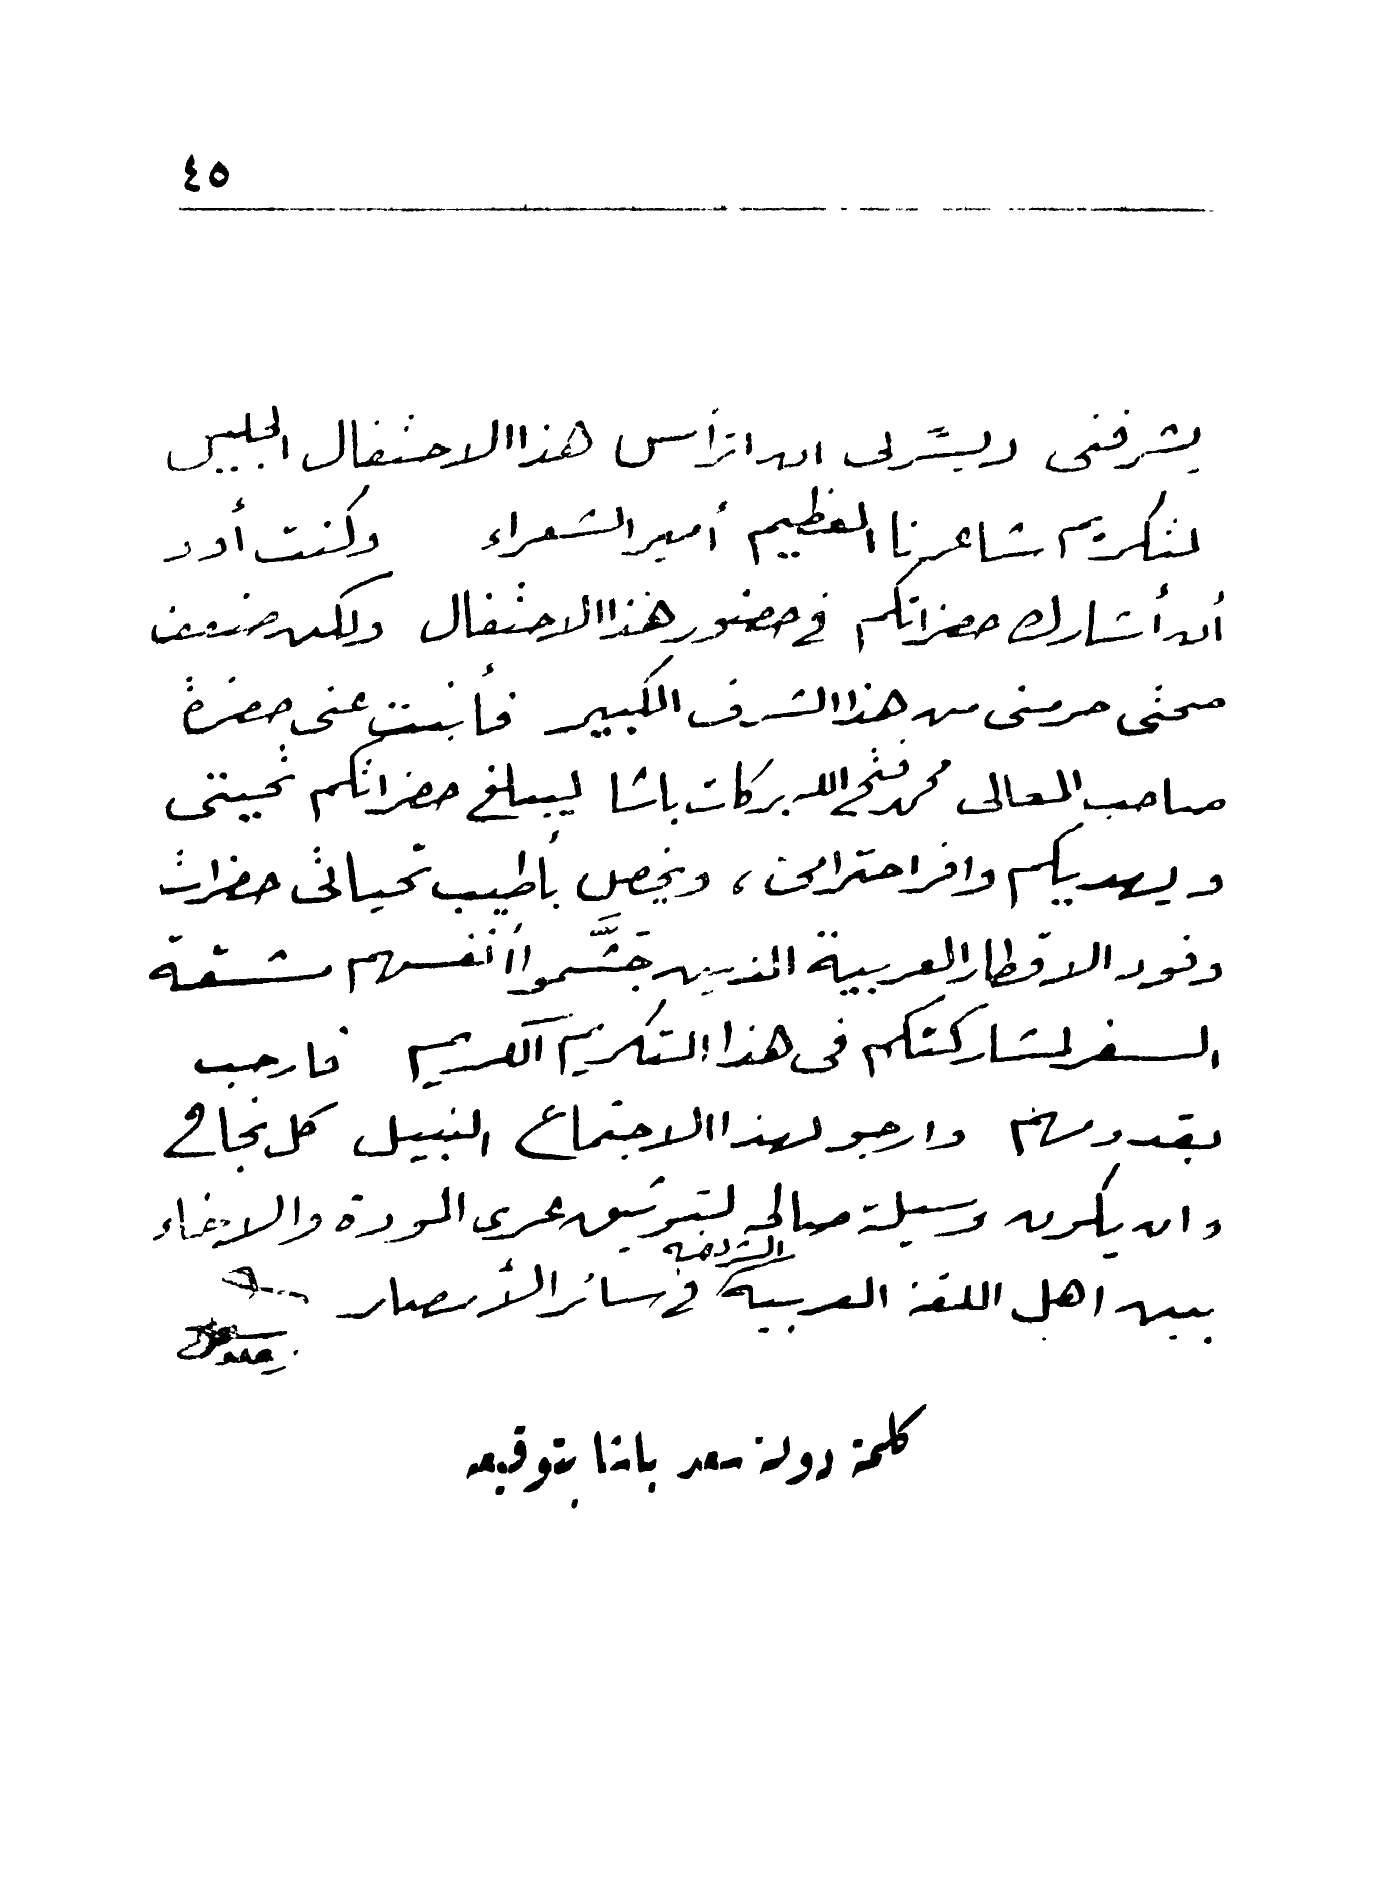 ٤٥
يشرفنى ويسرنى ان اترأس هذا الاحتفال الجليل
لتكريم شاعرنا العظيم أمير الشعراء وكنت أود
أن أشارك حضراتكم في حضور هذا الاحتفال ولكن ضعف
صحتى حرمنى من هذا الشرف الكبير فأنبت عنى حضرة
صاحب المعالى محمد فتح الله بركات باشا ليبلغ حضراتكم تحيتى
ويهديكم وافر احترامى ، ويخص بأطيب تحياتى حضرات
وفود الاقطار العربية الذين جشَّموا أنفسهم مشقة
السفر لمشاركتكم فى هذا التكريم الكريم فارحب
بقدومهم وارجو لهذا الاجتماع النبيل كل نجاح
وان يكون وسيلة صالحة لتوثيق عرى المودة والاخاء
بين اهل اللغة العربية الشريفة في سائر الأمصار
سعد زغلول
كلمة دولة سعد باشا بتوقيعه